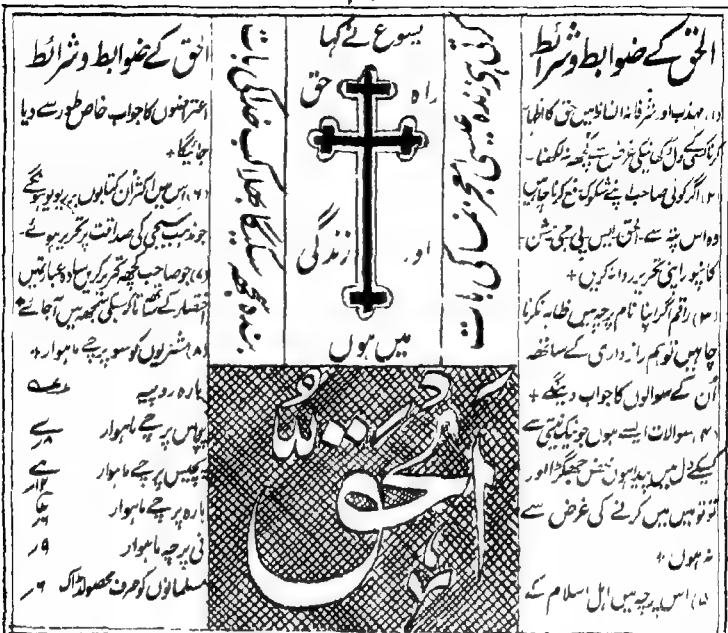 الحق کے ضوابط و شرائط
(۱) مہذب اور شرفانہ الفاظ میں حق کا اظہار
کرنا کسی دل کی نیکی غرض سے کچھ نہ لکھنا۔
(۲) اگر کوئی صاحب اپنے شکوک رفع کرنا چاہیں
وہ اس پتہ سے۔ الحق ایس پی جی مشن۔
کانپور اپنی تحریر روانہ کریں +
(۳) راقم اگر اپنا نام پرچہ میں ظاہر نکرنا
چاہیں تو ہم رازداری کے ساتھ
اُن کے سوالوں کا جواب دینگے +
(۴) سوالات ایسے ہوں جو نیک نیتی سے
کسیکے دل میں پیدا ہوں محض جھگڑا اور
تو تو میں میں کرنے کی غرض سے
نہ ہوں +
(۵) اس پرچہ میں اہل اسلام کے
زندہ عیسیٰ معجز نما کی بات
یسوع نے کہا
راہ حق
اور زندگی
میں ہوں
بندہ سمجھ سکیگا بھلا کب خدا کی بات
الحق
الحق کے ضوابط و شرائط
اعتراضوں کا جواب خاص طور سے دیا
جائیگا +
(۶) اس میں اکثر اُن کتابوں پر ریویو ہونگے
جو مذہب مسیحی کی صداقت پر تحریر ہوئے۔
(۷) جو صاحب کچھ تحریر کریں سادہ عبارت میں
اختصار کے ساتھ تاکہ سبکی سمجھ میں آ جائے +
(۸) مشتریوں کو سو پرچے ماہوار +
بارہ روپیہ
پچاس پرچے ماہوار
پچیس پرچے ماہوار
بارہ پرچے ماہوار
فی پرچہ ماہوار ۹ر
مسلمانوں کو صرف محصولڈاک ۶ر